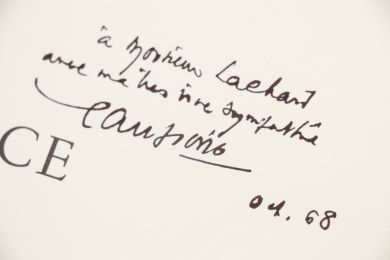 à Monsieur Lachard
avec ma très vive sympathie
CE
Oct. 68